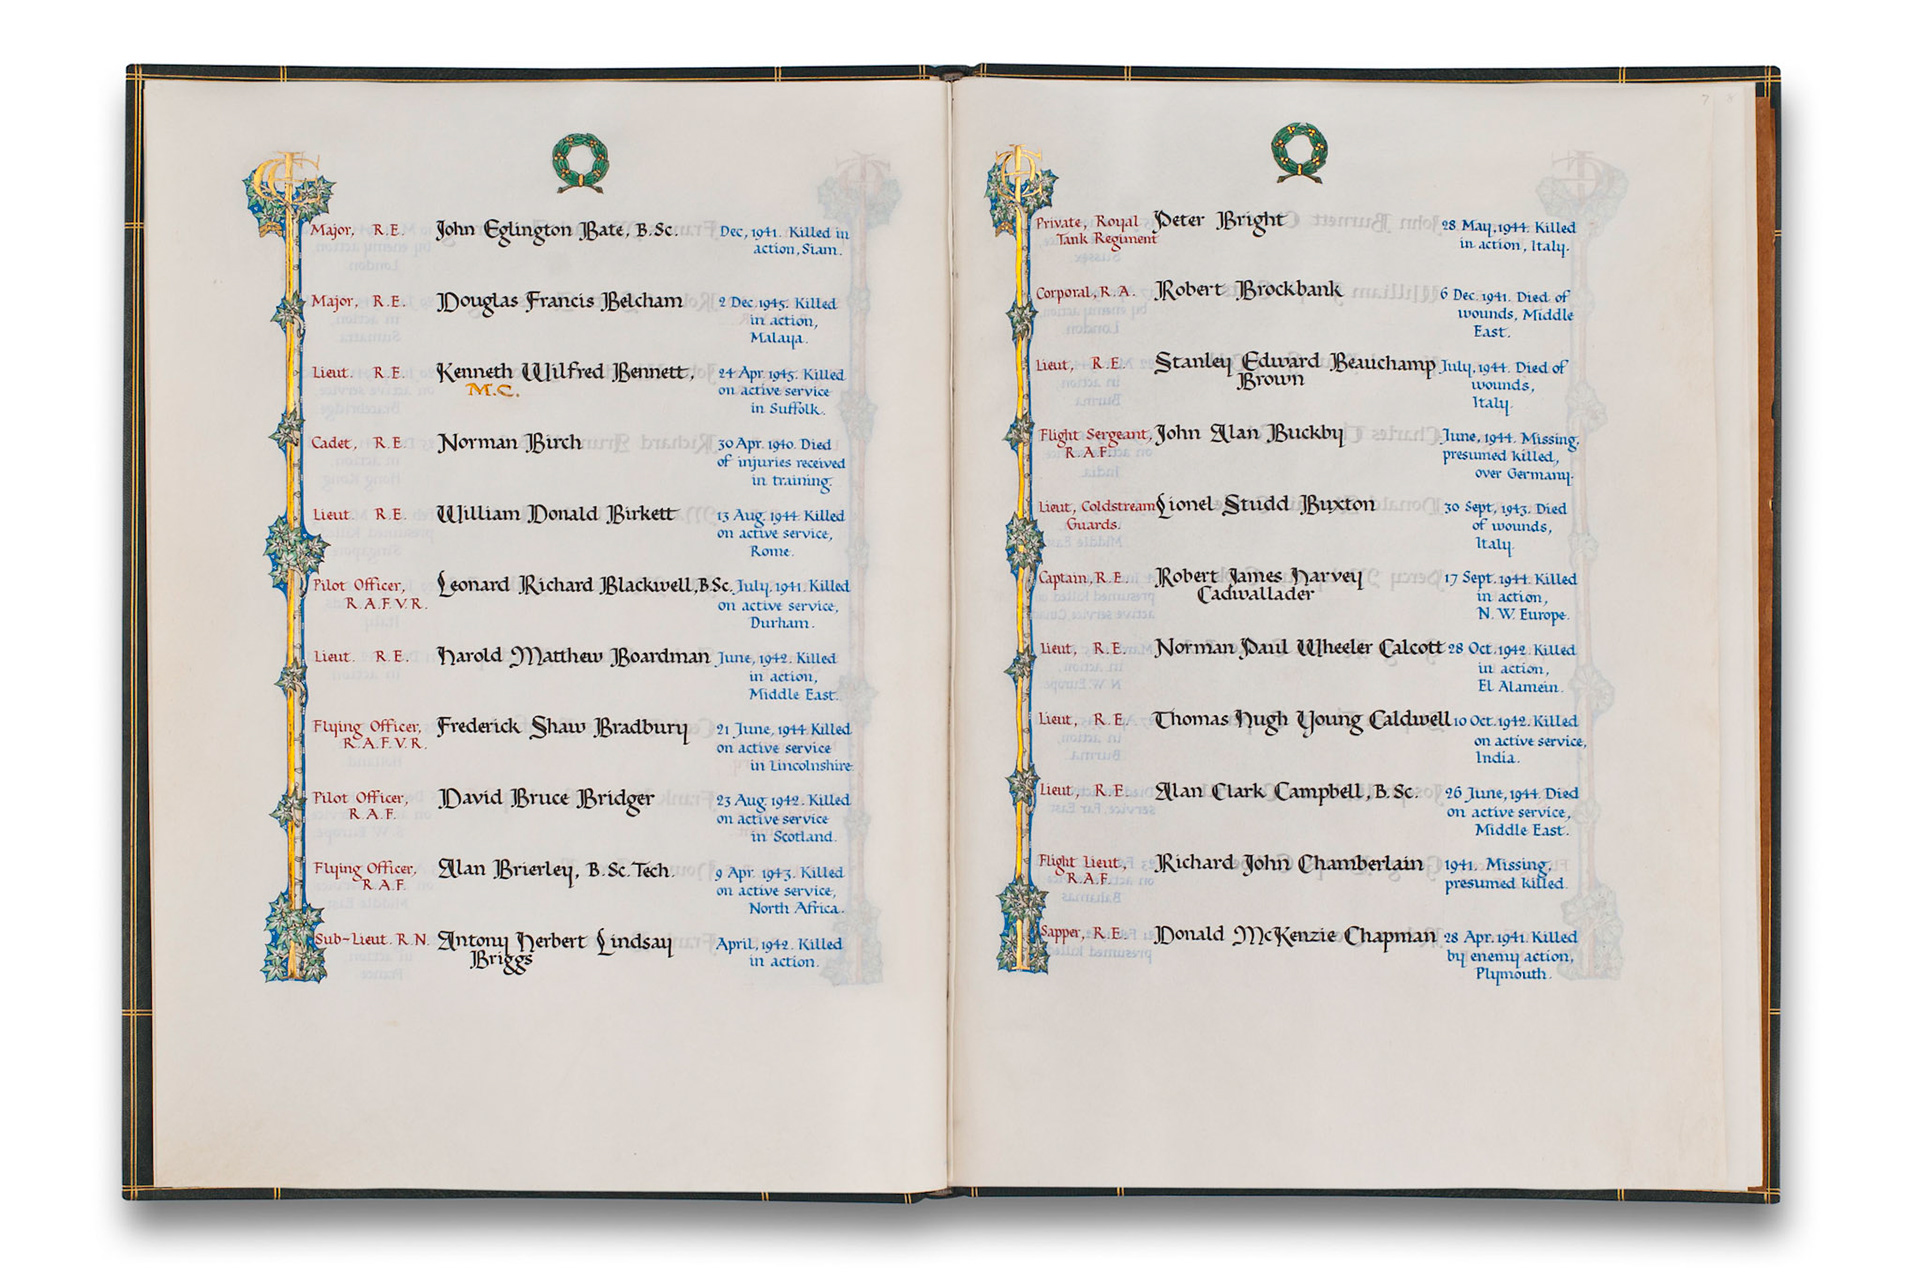 Major, R.E. John Eglington Bate, B.Sc. Dec, 1941. Killed in
action, Siam.
Major, R.E. Douglas Francis Belcham 2 Dec. 1945. Killed
in action,
Malaya.
Lieut. R.E. Kenneth Wilfred Bennett, 24 Apr. 1945. Killed
M.C. on active service
in Suffolk.
Cadet, R.E. Norman Birch 30 Apr. 1940. Died
of injuries received
in training.
Lieut. R.E. William Donald Birkett 13 Aug. 1944. Killed
on active service,
Rome.
Pilot Officer, Leonard Richard Blackwell, B.Sc. July, 1941. Killed
R.A.F.V.R. on active service,
Durham.
Lieut. R.E. Harold Matthew Boardman June, 1942. Killed
in action,
Middle East.
Flying Officer, Frederick Shaw Bradbury 21 June, 1944. Killed
R.A.F.V.R. on active service
in Lincolnshire
Pilot Officer, David Bruce Bridger 23 Aug. 1942. Killed
R.A.F. on active service
in Scotland.
Flying Officer, Alan Brierley, B.Sc.Tech. 9 Apr. 1943. Killed
R.A.F. on active service,
North Africa.
Sub-Lieut. R.N. Antony Herbert Lindsay April, 1942. Killed
Briggs in action.
7 8
Private, Royal Peter Bright 28 May, 1944. Killed
Tank Regiment in action, Italy.
Corporal, R.A. Robert Brockbank 6 Dec. 1941. Died of
wounds, Middle
East.
Lieut, R.E. Stanley Edward Beauchamp July, 1944. Died of
Brown wounds,
Italy.
Flight Sergeant, John Alan Buckby June, 1944. Missing,
R.A.F. presumed killed,
over Germany.
Lieut, Coldstream Lionel Studd Buxton 30 Sept, 1943. Died
Guards. of wounds,
Italy.
Captain, R.E. Robert James Harvey 17 Sept. 1944. Killed
Cadwallader in action,
N.W. Europe.
Lieut, R.E. Norman Paul Wheeler Calcott 28 Oct. 1942. Killed
in action,
El Alamein.
Lieut, R.E. Thomas Hugh Young Caldwell 10 Oct. 1942. Killed
on active service,
India.
Lieut, R.E. Alan Clark Campbell, B.Sc. 26 June, 1944. Died
on active service,
Middle East.
Flight Lieut, Richard John Chamberlain 1941. Missing,
R.A.F. presumed Killed.
Sapper, R.E. Donald McKenzie Chapman 28 Apr. 1941. Killed
by enemy action,
Plymouth.